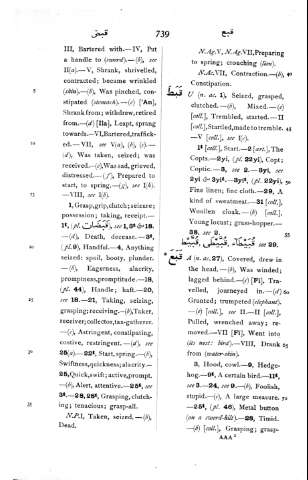 قبض
739
قبع
III, Bartered with.—IV, Put
a handle to (sword).—(b), see
II(a).—V, Shrank, shrivelled,
contracted; became wrinkled
(skin).—(b), Was pinched, con-
stipated (stomach).—(c) ['An],
Shrank from; withdrew, retired
from.—(d) [Ila], Leapt, sprang
towards.—VI, Bartered, traffick-
ed.—VII, see V(a), (b), (c).—
(d), Was taken, seized; was
received.—(e), Was sad, grieved,
distressed.—(f), Prepared to
start, to spring.—(g), see I(h).
—VIII, see I(b).
1, Grasp, grip, clutch; seizure;
possession; taking, receipt.—
—(d), Death, decease.—
Handful.—4, Anything
seized: spoil, booty, plunder.
—(b), Eagerness, alacrity,
promptness, promptitude.—18,
(pl. 44), Handle; haft.—20,
see 18.—21, Taking, seizing,
grasping; receiving.—(b), Taker,
receiver; collector, tax-gatherer.
—(c), Astringent, constipating,
costive, restringent.—(d), see
Start, spring.—(b),
Swiftness, quickness; alacrity.—
25, Quick, swift; active, prompt.
—(b), Alert, attentive.—
Grasping, clutch-
ing; tenacious; grasp-all.
N.P.I, Taken, seized.—(b),
Dead.
N.Ag.V, N.Ag.VII, Preparing
to spring; crouching (lion).
N.Ac.VII, Contraction.—(b),
Constipation.
قبط
U (n. ac. 1), Seized, grasped,
clutched.—(b), Mixed.—(c)
[coll.], Trembled, started.—II
[coll.], Startled, made to tremble.
—V [coll.], see I(c).
[coll.], Start.—2 [art.], The
Copts.— Copt;
Coptic.—3, see
Fine linen; fine cloth.—29, A
kind of sweetmeat.—31 [coll.],
Woollen cloak.—(b) [coll.],
Young locust; grass-hopper.—
38, see 2.
see 29.
قبع
A (n. ac. 27), Covered, drew in
the head.—(b), Was winded;
lagged behind.—(c) [Fî], Tra-
velled, journeyed in.—(d)
Grunted; trumpeted (elephant).
—(e) [coll.], see II.—II [coll.],
Pulled, wrenched away; re-
moved.—VII [Fî], Went into
(its nest: bird).—VIII, Drank
from (water-skin).
3, Hood, cowl.—9, Hedge-
hog.— A certain bird.—
see 3.—24, see 9.—(b), Foolish,
stupid.—(c), A large measure.
(pl. 46), Metal button
(on a sword-hilt).—28, Timid.
—(b) [coll.], Grasping; grasp-
AAA